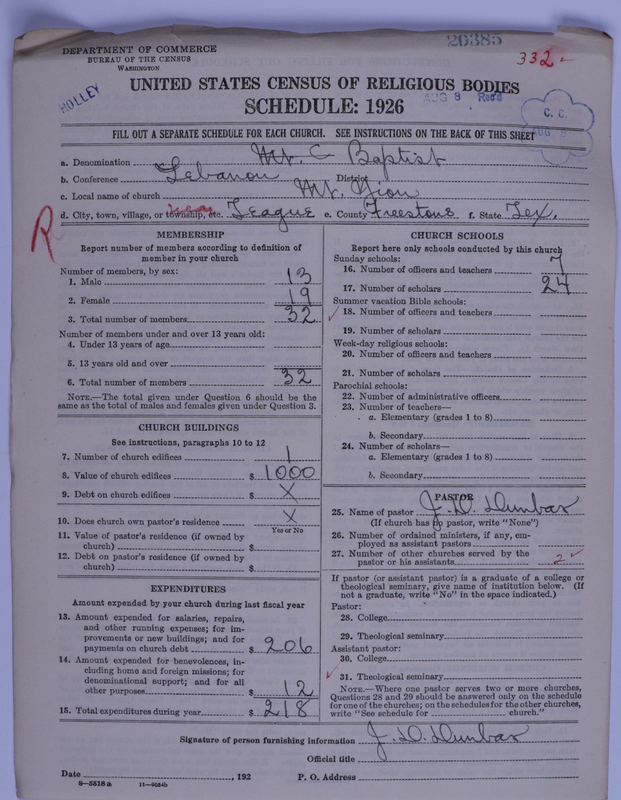 20385
DEPARTMENT OF COMMERCE
BUREAU OF THE CENSUS
WASHINGTON
332
HOLLEY
UNITED STATES CENSUS OF RELIGIOUS BODIES
SCHEDULE: 1926
AUG 8 Rec'd
C. C.
AUG 8
FILL OUT A SEPARATE SCHEDULE FOR EACH CHURCH. SEE INSTRUCTIONS ON THE BACK OF THIS SHEET
a. Denomination Baptist
b. Conference Lebanon District
c. Local name of church Mt. Zion
d. City, town, village, or township, etc. near Teague e. County Freestone f. State Tex.
R
MEMBERSHIP
Report number of members according to definition of
member in your church
Number of members, by sex:
1. Male 13
2. Female 19
3. Total number of members 32
Number of members under and over 13 years old:
4. Under 13 years of age
5. 13 years old and over
6. Total number of members 32
NOTE.—The total given under Question 6 should be
the same as the total of males and females given under Question 3.
CHURCH BUILDINGS
See instructions, paragraphs 10 to 12
7. Number of church edifices 1
8. Value of church edifices $ 1000
9. Debt on church edifices $ X
10. Does church own pastor's residence X
Yes or No
11. Value of pastor's residence (if owned by
church) $
12. Debt on pastor's residence (if owned by
church) $
EXPENDITURES
Amount expended by your church during last fiscal year
13. Amount expended for salaries, repairs,
and other running expenses; for im-
provements or new buildings; and for
payments on church debt $ 206
14. Amount expended for benevolences, in-
cluding home and foreign missions; for
denominational support; and for all
other purposes $ 12
15. Total expenditures during year $ 218
CHURCH SCHOOLS
Report here only schools conducted by this church
Sunday schools:
16. Number of officers and teachers 7
17. Number of scholars 24
Summer vacation Bible schools:
18. Number of officers and teachers
19. Number of scholars
Week-day religious schools:
20. Number of officers and teachers
21. Number of scholars
Parochial schools:
22. Number of administrative officers
23. Number of teachers—
a. Elementary (grades 1 to 8)
b. Secondary
24. Number of scholars—
a. Elementary (grades 1 to 8)
b. Secondary
PASTOR
25. Name of pastor J. D. Dunbar
(If church has no pastor, write "None")
26. Number of ordained ministers, if any, em-
ployed as assistant pastors
27. Number of other churches served by the
pastor or his assistants 2
If pastor (or assistant pastor) is a graduate of a college or
theological seminary, give name of institution below. (If
not a graduate, write "No" in the space indicated.)
Pastor:
28. College
29. Theological seminary
Assistant pastor:
30. College
31. Theological seminary
NOTE.—Where one pastor serves two or more churches,
Questions 28 and 29 should be answered only on the schedule
for one of the churches; on the schedules for the other churches,
write "See schedule for church."
Signature of person furnishing information J. D. Dunbar
Official title
Date , 192 P. O. Address